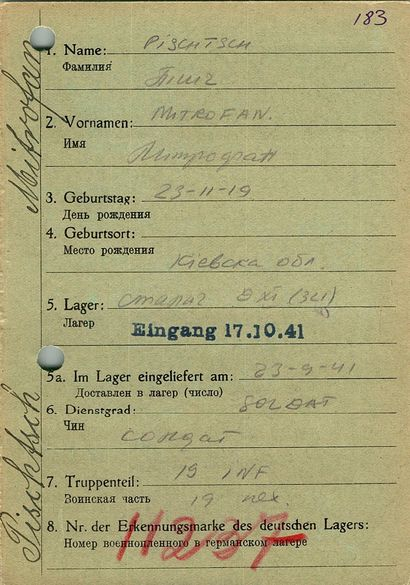 183
1. Name: PISCHTSCH
Фамилия
Пищ
2. Vornamen: MITROFAN.
Имя
Митрофан
3. Geburtstag: 23-11-19
День рождения
4. Geburtsort:
Место рождения
Кіевска обл.
5. Lager: сталаг (314)
Лагер
Eingang 17.10.41
5a. Im Lager eingeliefert am: 23-9-41
Доставлен в лагер (число)
6. Dienstgrad: SOLDAT
Чин
солдат
7. Truppenteil: 19 INF
Воинская часть 19 пех.
8. Nr. der Erkennungsmarke des deutschen Lagers:
Номер военнопленного в германском лагере
11237
Pischtsch Mitrofan